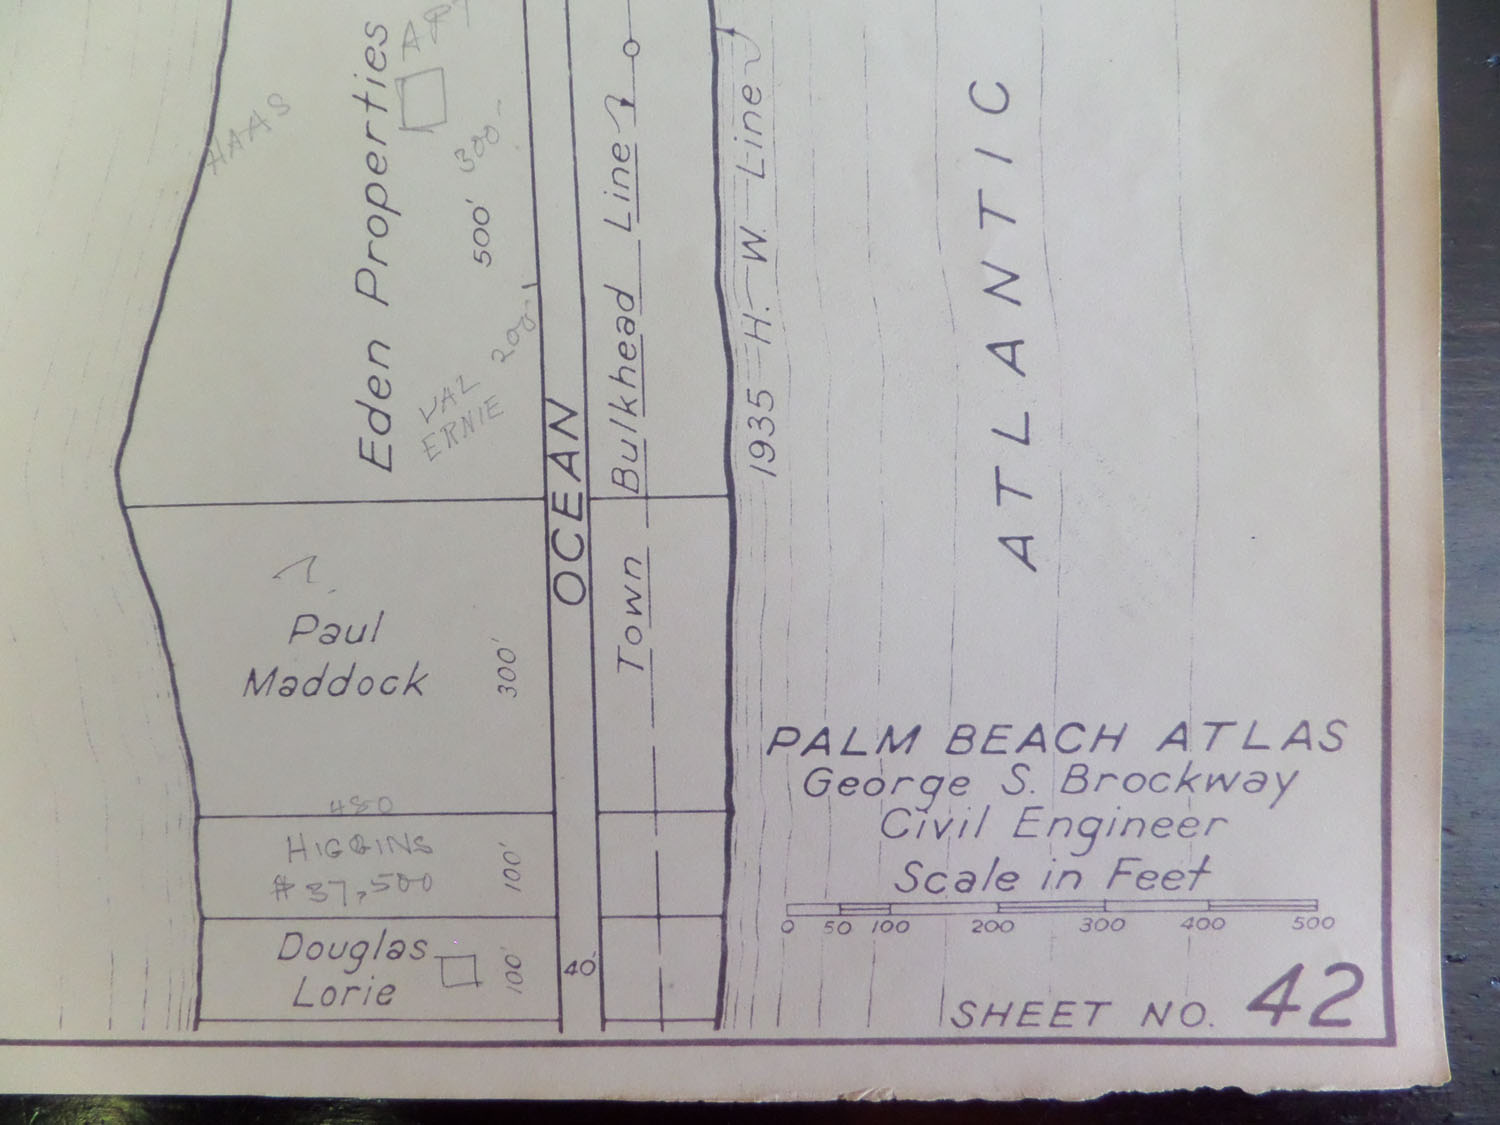 HAAS
Eden Properties
300-
500'
200-
VAL
ERNIE
OCEAN
Town Bulkhead Line
1935 H. W. Line
ATLANTIC
Paul
Maddock
300'
480
HIGGINS
$37,500
100'
Douglas
Lorie
100'
40'
PALM BEACH ATLAS
George S. Brockway
Civil Engineer
Scale in Feet
0 50 100 200 300 400 500
SHEET NO. 42